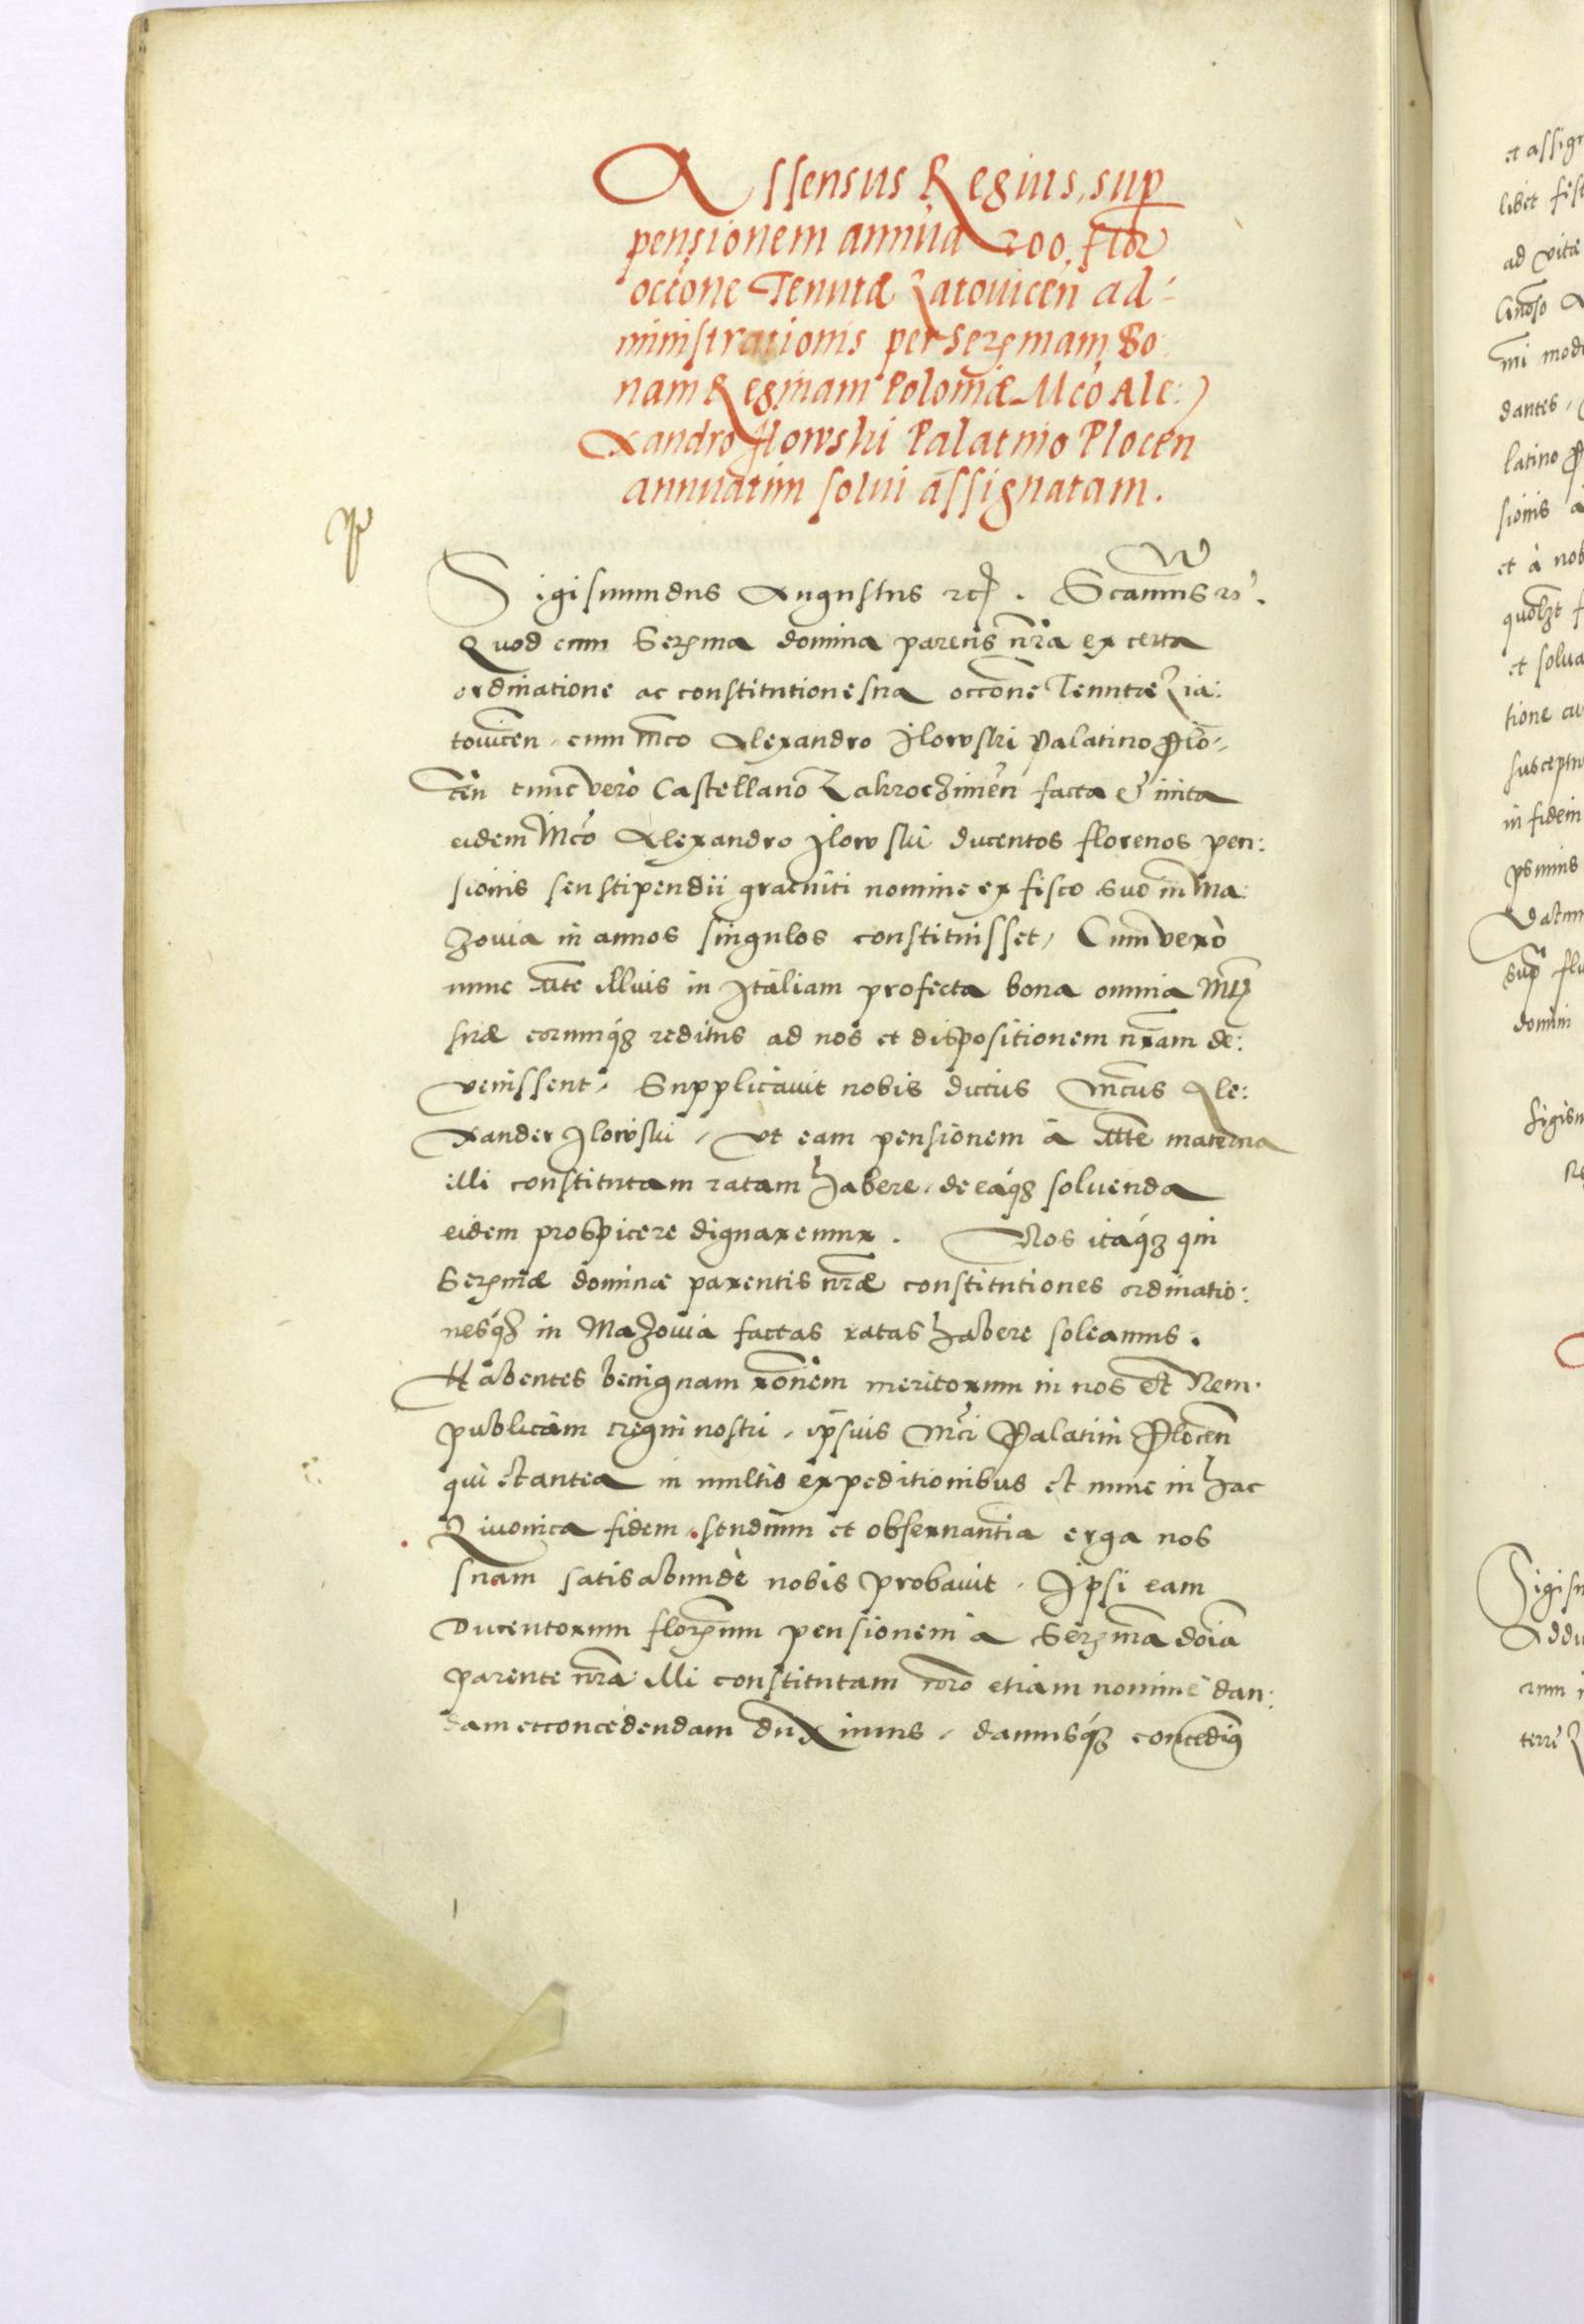 Assensus Regius, sup
pensionem annua 200, flor
occõne Tenutæ Ziatouicen ad-
ministrationis per Serēmam Bo
nam Reginam Poloniæ Mco Ale:
xandro Ilowski Palatino Plocen
annuatim solui assignatam.
Sigismundus Augustus etc. Significamus
Quod cum Serēma domina parens nr̃a ex certa
ordinatione ac constitutione sua occõne Tenutæ Zia:
touicen, cum mco Alexandro Ilowski Palatino Plo-
cen tunc verò Castellano Zakroczimen facta et inita
eidem Mco Alexandro Ilowski ducentos florenos pen:
sionis seu stipendii gratuiti nomine ex fisco suo in Ma
zouia in annos singulos constituisset, Cum verò
nunc Mte illius in Italiam profecta bona omnia Mtis
suæ eorumq́ꝫ reditus ad nos et dispositionem nr̃am de:
venissent, Supplicauit nobis dictus Mcus Ale:
xander Ilowski, vt eam pensionem à Mte materna
illi constitutam ratam habere, de eaq́ꝫ soluenda
eidem prospicere dignaremur. Nos itaq́ꝫ qui
Serēmæ dominæ parentis nr̃æ constitutiones ordinatio:
nesq́ꝫ in Mazouia factas ratas habere soleamus.
Habentes benignam rõnem meritorum in nos et Rem
publicam regni nostri, ipsius Mci Palatini Plocen
qui et antea in multis expeditionibus et nunc in hac
Liuonica fidem, studium et obseruantia erga nos
suam satis abundè nobis probauit. Ipsi eam
Ducentorum florenum pensionem a Serēma doĩa
parente nr̃a illi constitutam nr̃o etiam nomine dan:
dam et concedendam duximus, damusq́ꝫ concedimus